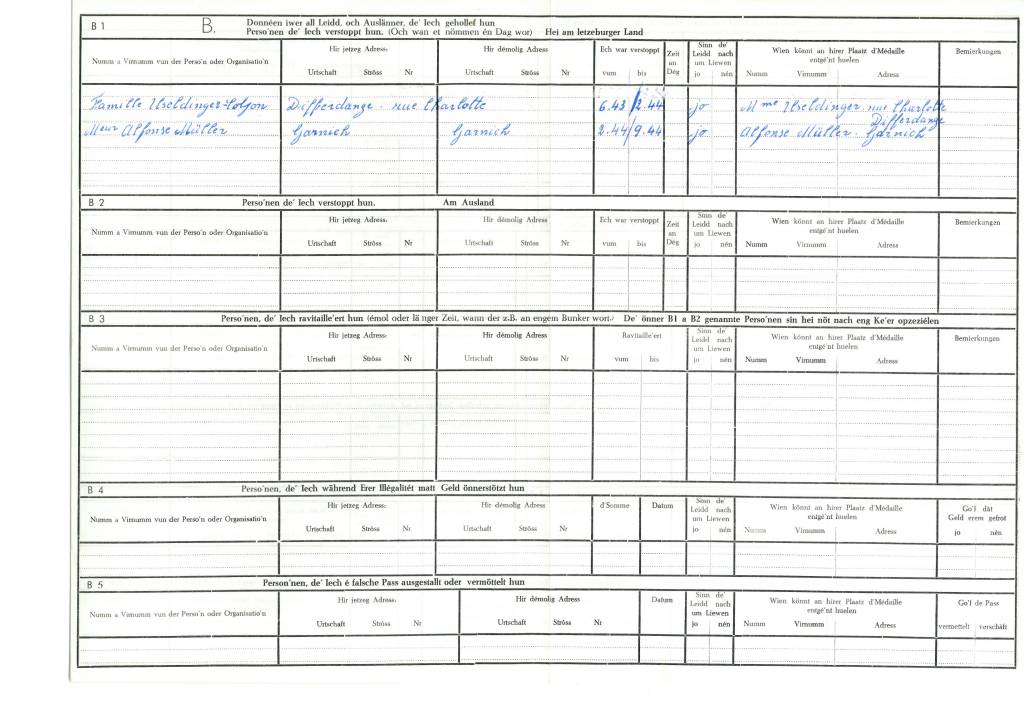 B 1 B. Donnéen iwer all Leidd, och Auslänner, de' Iech gehollef hun
Perso'nen de' Iech verstoppt hun. (Och wan et nömmen én Dag wor) Hei am letzeburger Land
Numm a Virnumm vun der Perso'n oder Organisatio'n
Hir jetzeg Adress:
Urtschaft Ströss Nr
Hir démolig Adress:
Urtschaft Ströss Nr
Ech war verstoppt
vum bis
Zeit
an
Dég
Sinn de'
Leidd nach
um Liewen
jo nén
Wien könnt an hirer Plaatz d'Médaille
entgé'nt huelen
Numm Virnumm Adress
Bemierkungen
Famille Useldinger-Toljon Differdange . rue Charlotte 6.43 / 2.44 jo Mme Useldinger. rue Charlotte
Differdange
Meur Alfonse Müller Garnich Garnich 2.44 / 9.44 jo Alfonse Müller . Garnich
B 2 Perso'nen de' Iech verstoppt hun. Am Ausland
Numm a Virnumm vun der Perso'n oder Organisatio'n
Hir jetzeg Adress:
Urtschaft Ströss Nr
Hir démolig Adress
Urtschaft Ströss Nr
Ech war verstoppt
vum bis
Zeit
an
Dég
Sinn de'
Leidd nach
um Liewen
jo nén
Wien könnt an hirer Plaatz d'Médaille
entgé'nt huelen
Numm Virnumm Adress
Bemierkungen
B 3 Perso'nen, de' Iech ravitaille'ert hun (émol oder lä nger Zeit, wann der z.B. an engem Bunker wort.) De' önner B1 a B2 genannte Perso'nen sin hei nöt nach eng Ke'er opzeziélen
Numm a Virnumm vun der Perso'n oder Organisatio'n
Hir jetzeg Adress:
Urtschaft Ströss Nr
Hir démolig Adress:
Urtschaft Ströss Nr
Ravitaille'ert
vum bis
Sinn de'
Leidd nach
um Liewen
jo nén
Wien könnt an hirer Plaatz d'Médaille
entgé'nt huelen
Numm Virnumm Adress
Bemierkungen
B 4 Perso'nen, de' Iech während Erer Illégalitét matt Geld önnerstötzt hun
Numm a Virnumm vun der Perso'n oder Organisatio'n
Hir jetzeg Adress:
Urtschaft Ströss Nr
Hir démolig Adress
Urtschaft Ströss Nr
d'Somme
Datum
Sinn de'
Leidd nach
um Liewen
jo nén
Wien könnt an hirer Plaatz d'Médaille
entgé'nt huelen
Numm Virnumm Adress
Go'f dät
Geld erem gefrot
jo nén
B 5 Person'nen, de' Iech é falsche Pass ausgestallt oder vermöttelt hun
Numm a Virnumm vun der Perso'n oder Organisatio'n
Hir jetzeg Adress:
Urtschaft Ströss Nr
Hir démolig Adress
Urtschaft Ströss Nr
Datum
Sinn de'
Leidd nach
um Liewen
jo nén
Wien könnt an hirer Plaatz d'Médaille
entgé'nt huelen
Numm Virnumm Adress
Go'f de Pass
vermettelt verschäft